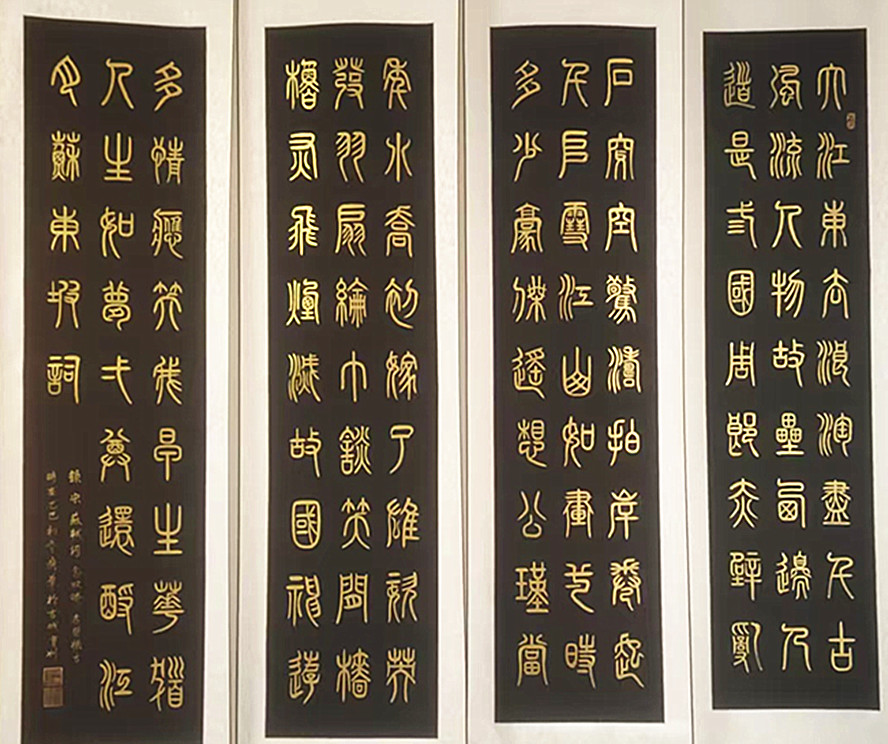 大江東去浪淘盡千古
風流人物故壘西邊人
道是弎國周郎赤壁亂
石穿空驚濤拍岸卷起
千𠂤雪江山如畫弌時
多少豪傑遙想公瑾當
年小喬初嫁了雄姿英
發羽扇綸巾談笑間檣
櫓灰飛煙滅故國神遊
多情應笑我早生華髮
人生如夢弌尊還酹江
月蘇東坡詞
錄宋蘇軾詞念奴嬌赤壁懷古
時在乙巳